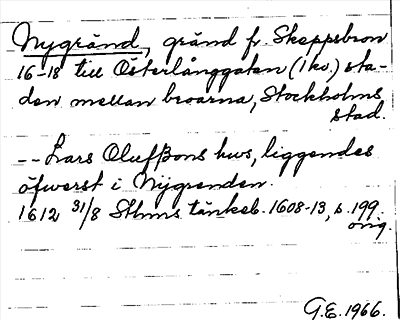 Nygränd, gränd fr. Skeppsbron
16-18 till Österlånggatan (1 kv.) sta-
den mellan broarna, Stockholms
stad.
-- Lars Olufßons hus, liggendes
öfwerst i Nijgrenden.
1612 31/8 Sthms tänkeb. 1608-13, s. 199
orig.
G.E. 1966.